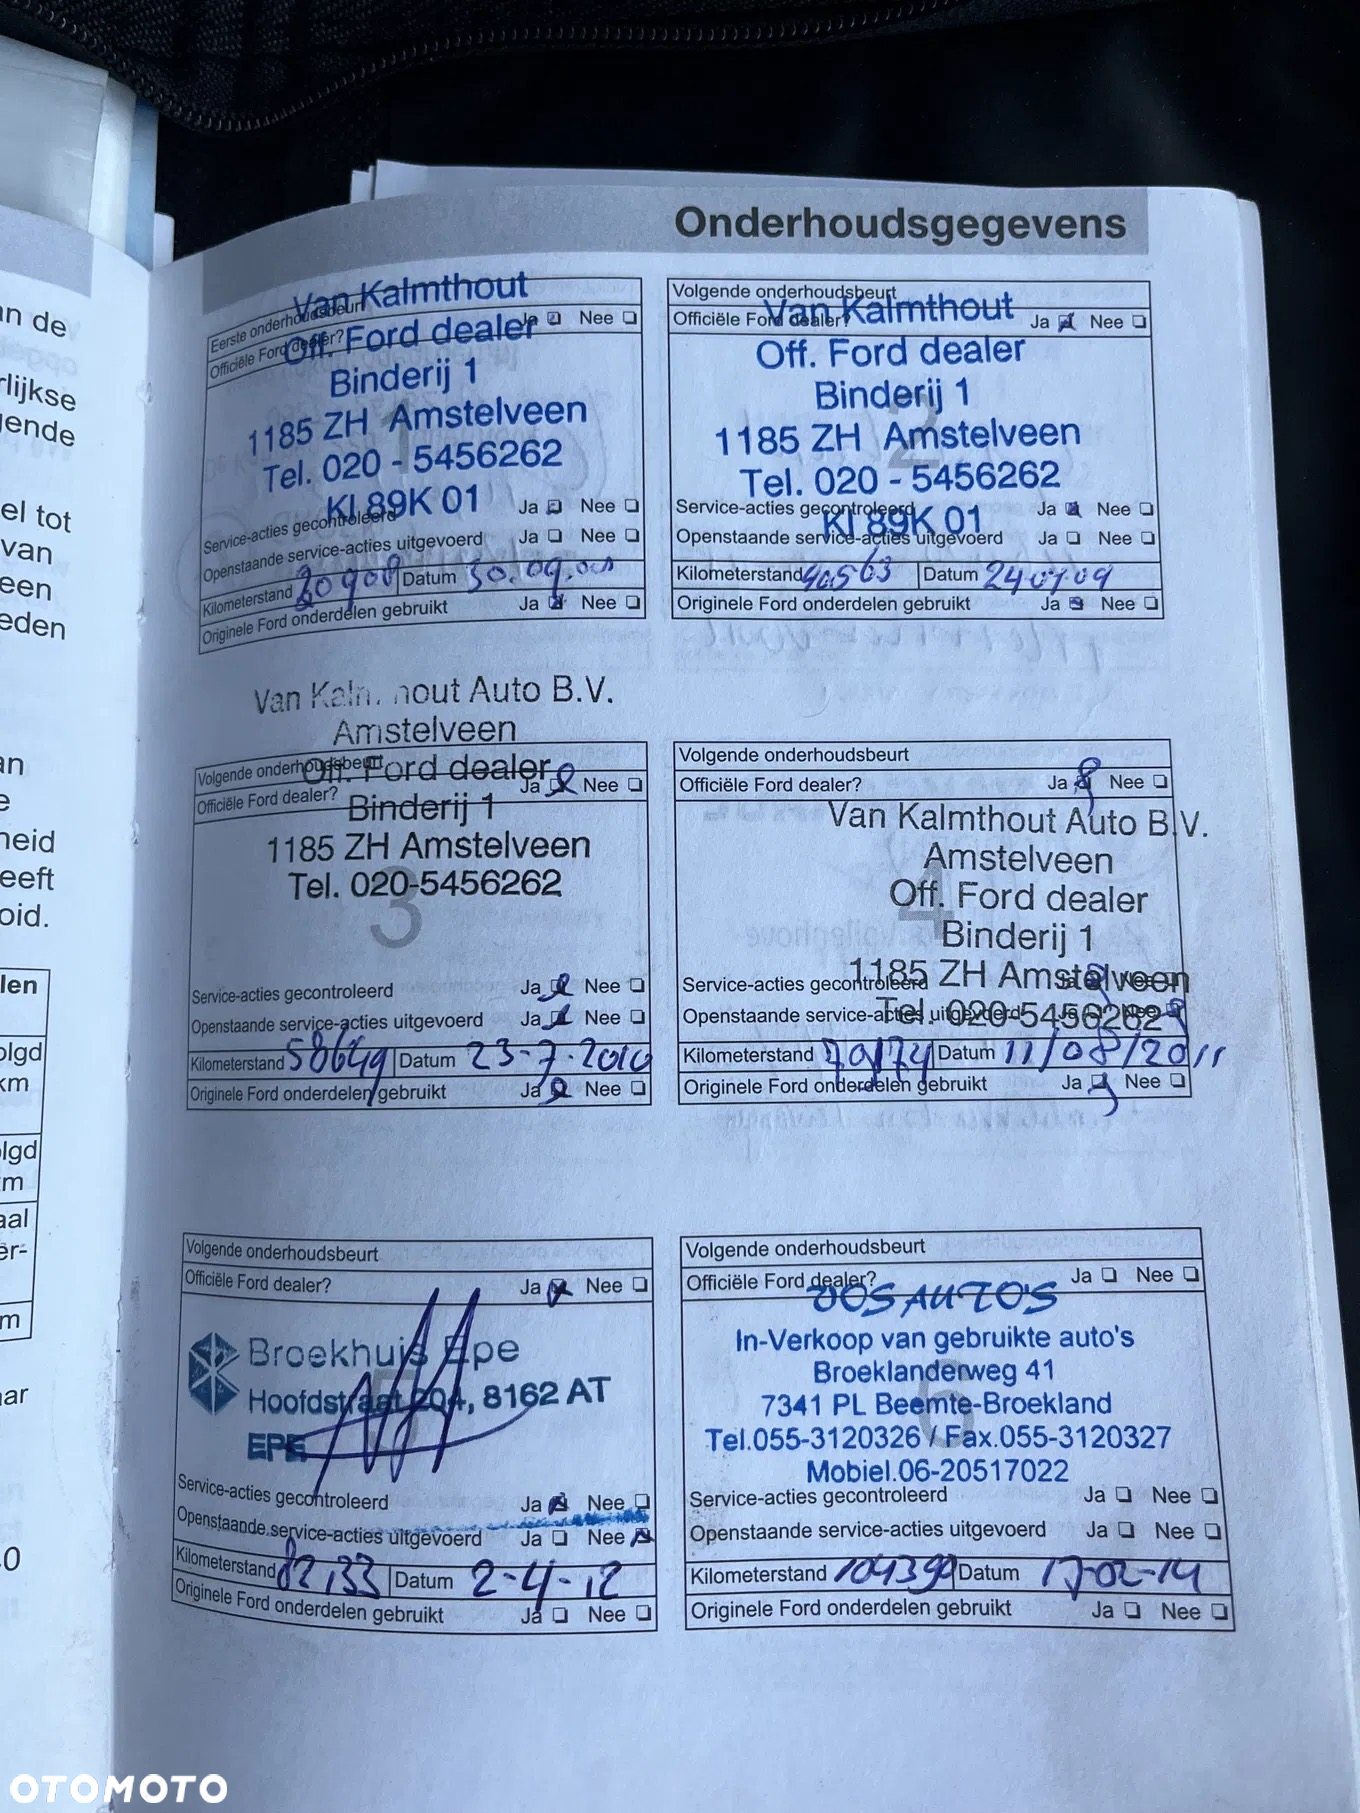 Onderhoudsgegevens
Van Kalmthout
Eerste onderhoudsbeurt
Officiële Ford dealer? Ja Nee
Off. Ford dealer
Binderij 1
1185 ZH Amstelveen
Tel. 020 - 5456262
KI 89K 01
Service-acties gecontroleerd Ja Nee
Openstaande service-acties uitgevoerd Ja Nee
Kilometerstand 20908 Datum 30.09.
Originele Ford onderdelen gebruikt Ja Nee
Volgende onderhoudsbeurt
Van Kalmthout
Officiële Ford dealer? Ja Nee
Off. Ford dealer
Binderij 1
1185 ZH Amstelveen
Tel. 020 - 5456262
Service-acties gecontroleerd Ja Nee
KI 89K 01
Openstaande service-acties uitgevoerd Ja Nee
Kilometerstand 40563 Datum 240709
Originele Ford onderdelen gebruikt Ja Nee
Van Kalmthout Auto B.V.
Amstelveen
Volgende onderhoudsbeurt
Off. Ford dealer
Officiële Ford dealer? Ja Nee
Binderij 1
1185 ZH Amstelveen
Tel. 020-5456262
3
Service-acties gecontroleerd Ja Nee
Openstaande service-acties uitgevoerd Ja Nee
Kilometerstand 58649 Datum 23-7-2010
Originele Ford onderdelen gebruikt Ja Nee
Volgende onderhoudsbeurt
Officiële Ford dealer? Ja Nee
Van Kalmthout Auto B.V.
Amstelveen
Off. Ford dealer
4
Binderij 1
1185 ZH Amstelveen
Service-acties gecontroleerd
Tel. 020-5456262
Openstaande service-acties uitgevoerd
Kilometerstand 70174 Datum 11/08/2011
Originele Ford onderdelen gebruikt Ja Nee
Volgende onderhoudsbeurt
Officiële Ford dealer? Ja Nee
Broekhuis Epe
Hoofdstraat 204, 8162 AT
EPE
Service-acties gecontroleerd Ja Nee
Openstaande service-acties uitgevoerd Ja Nee
Kilometerstand 82133 Datum 2-4-12
Originele Ford onderdelen gebruikt Ja Nee
Volgende onderhoudsbeurt
Officiële Ford dealer? Ja Nee
VOS AUTO'S
In-Verkoop van gebruikte auto's
Broeklanderweg 41
7341 PL Beemte-Broekland
6
Tel.055-3120326 / Fax.055-3120327
Mobiel.06-20517022
Service-acties gecontroleerd Ja Nee
Openstaande service-acties uitgevoerd Ja Nee
Kilometerstand 104390 Datum 17-02-14
Originele Ford onderdelen gebruikt Ja Nee
OTOMOTO